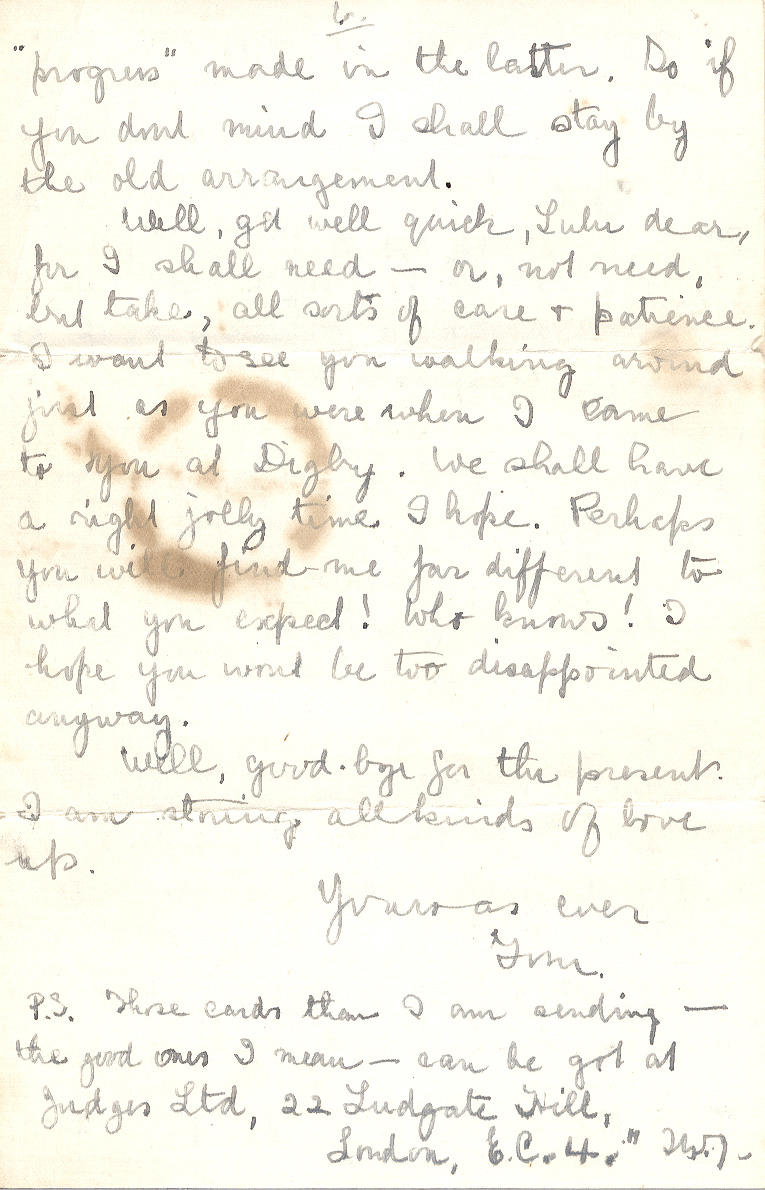 6.
"progress" made in the latter. So if
you dont mind I shall stay by
the old arrangement.
Well, get well quick, Lulu dear,
for I shall need — or, not need,
but take, all sorts of care & patience.
I want to see you walking around
just as you were when I came
to you at Digby. We shall have
a right jolly time I hope. Perhaps
you will find me far different to
what you expect! Who knows! I
hope you wont be too disappointed
anyway.
Well, good-bye for the present.
I am storing all kinds of love
up.
Yours as ever
Tom.
P.S. Those cards than I am sending —
the good ones I mean — can be got at
Judges Ltd, 22 Ludgate Hill,
London, E.C.4."